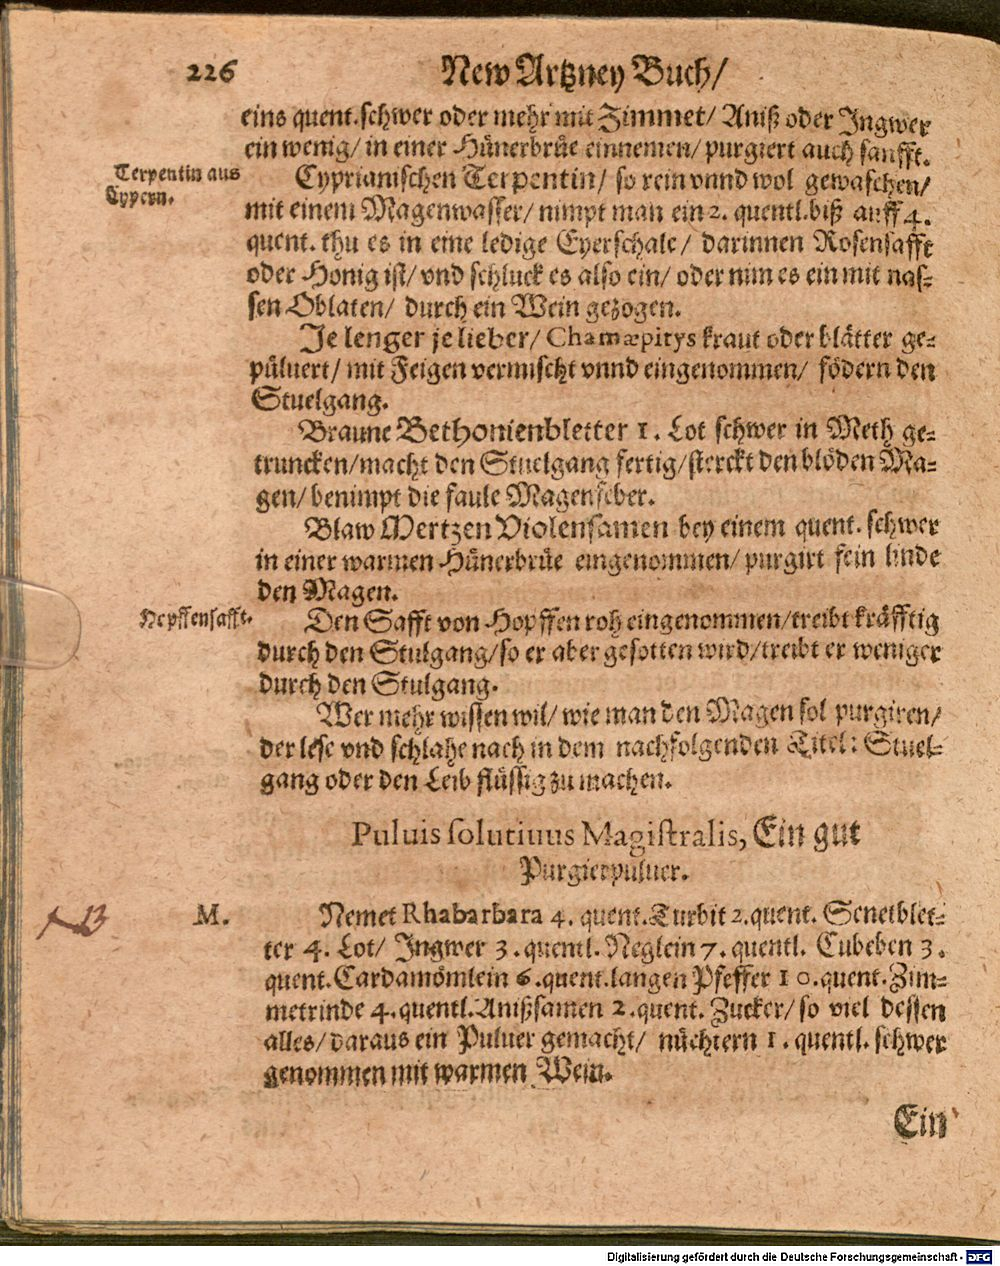 226
New Artzney Buch/
eins quent. schwer oder mehr mit Zimmet/ Aniß oder Ingwer
ein wenig/ in einer Hünerbrüe einnemen/ purgiert auch sanfft.
Terpentin aus
Cypern.
Cyprianischen Terpentin/ so rein vnnd wol gewaschen/
mit einem Magenwasser/ nimpt man ein 2. quentl. biß auff 4.
quent. thu es in eine ledige Eyerschale/ darinnen Rosensafft
oder Honig ist/ vnd schluck es also ein/ oder nim es ein mit nas-
sen Oblaten/ durch ein Wein gezogen.
Je lenger je lieber/ Chamæpitys kraut oder blätter ge-
püluert/ mit Feigen vermischt vnnd eingenommen/ födern den
Stuelgang.
Braune Bethonienbletter 1. Lot schwer in Meth ge-
truncken/ macht den Stuelgang fertig/ sterckt den blöden Ma-
gen/ benimpt die faule Magenfeber.
Blaw Mertzen Violensamen bey einem quent. schwer
in einer warmen Hünerbrüe eingenommen/ purgirt fein linde
den Magen.
Hopffensafft.
Den Safft von Hopffen roh eingenommen/ treibt kräfftig
durch den Stulgang/ so er aber gesotten wird/ treibt er weniger
durch den Stulgang.
Wer mehr wissen wil/ wie man den Magen sol purgiren/
der lese vnd schlahe nach in dem nachfolgenden Titel: Stuel-
gang oder den Leib flüssig zu machen.
Puluis solutiuus Magistralis, Ein gut
Purgierpuluer.
13
M.
Nemet Rhabarbara 4. quent. Turbit 2. quent. Senetblet-
ter 4. Lot/ Ingwer 3. quentl. Neglein 7. quentl. Cubeben 3.
quent. Cardamömlein 6. quent. langen Pfeffer 10. quent. Zim-
metrinde 4. quentl. Anißsamen 2. quent. Zucker/ so viel dessen
alles/ daraus ein Puluer gemacht/ nüchtern 1. quentl. schwer
genommen mit warmen Wein.
Ein
Digitalisierung gefördert durch die Deutsche Forschungsgemeinschaft - DFG